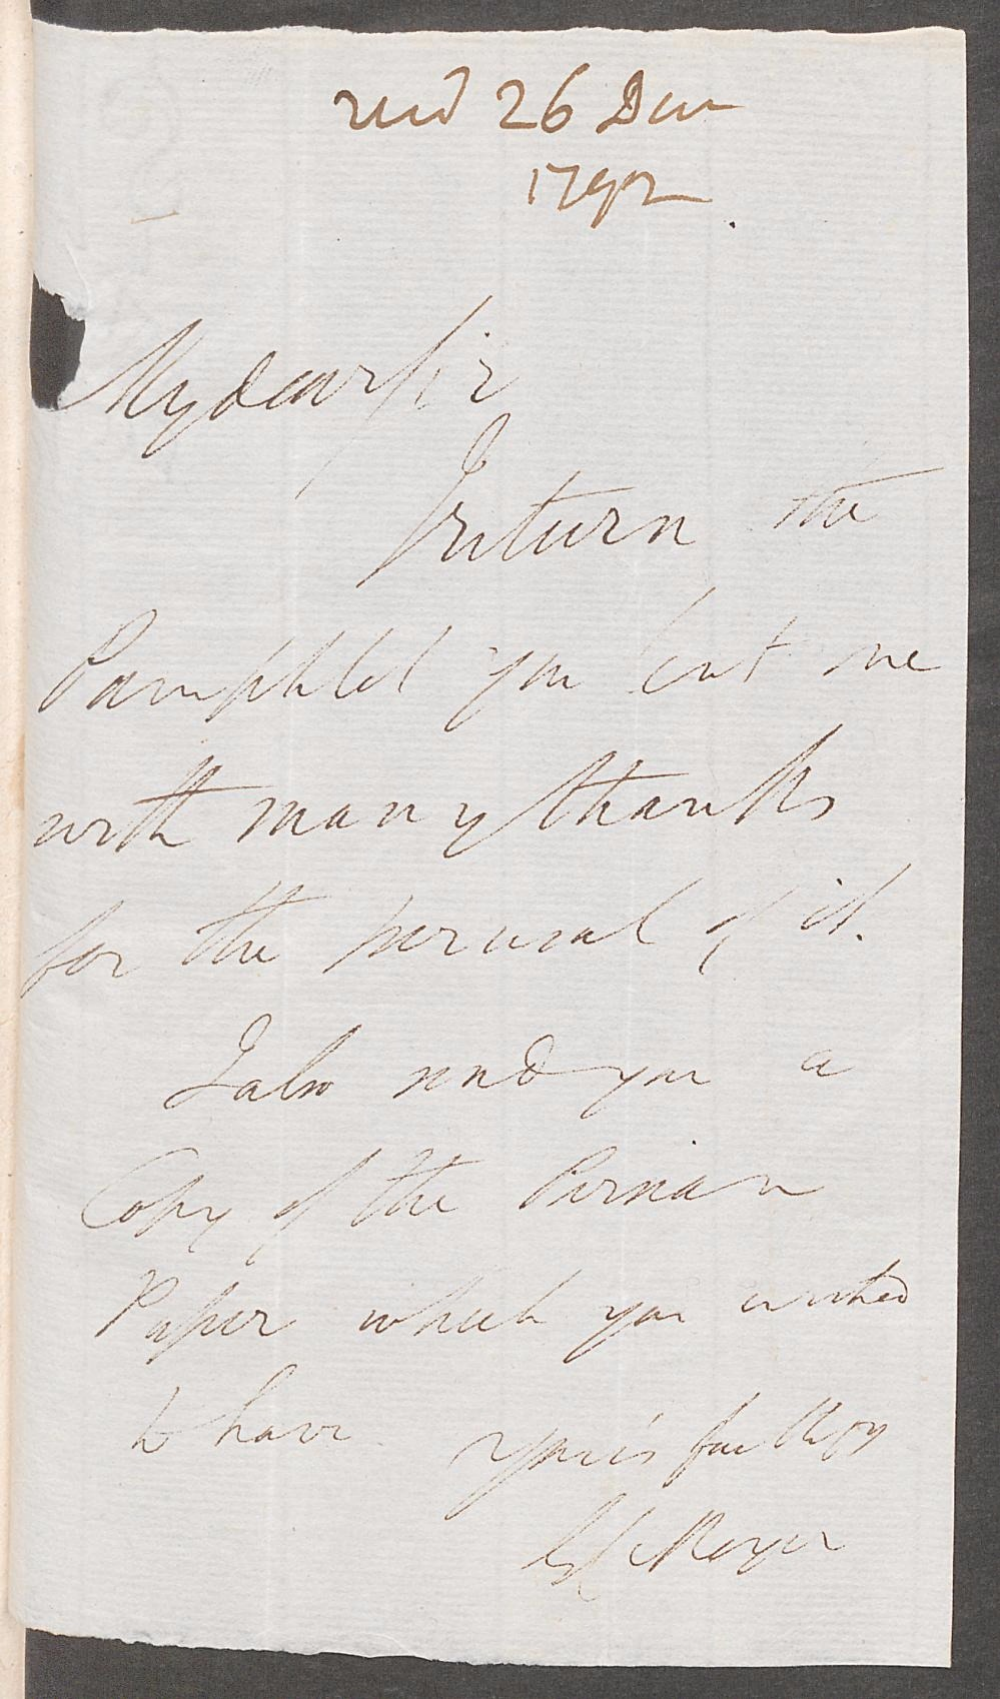 recd 26 Decr
1792
My dear Sir
I return the
Pamphlet you lent me
with many thanks
for the perusal of it.
I also send you a
Copy of the Persian
Paper which you wished
to have
yours faithfly
Meyer